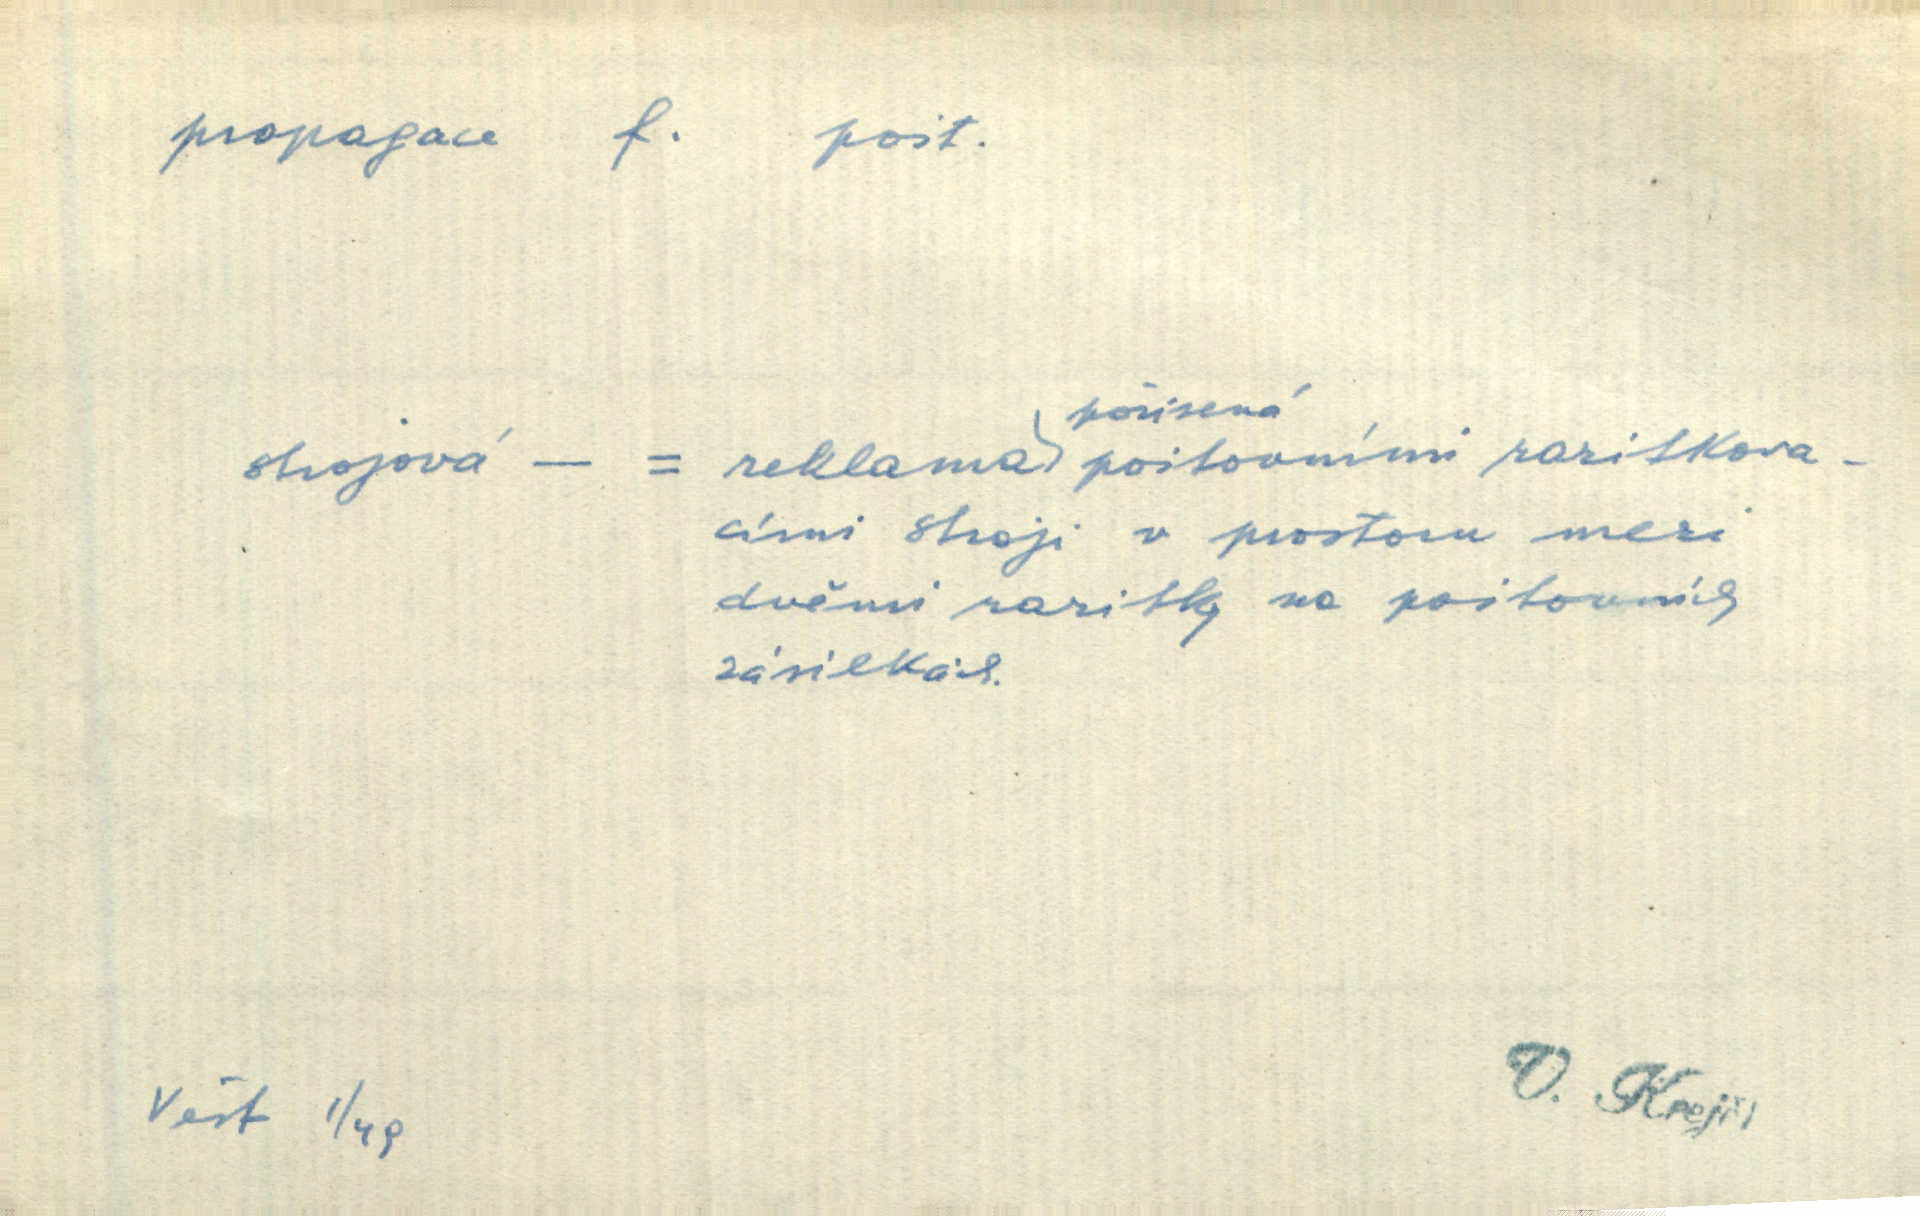 propagace f. pošt.
pořízená
strojová — = reklama poštovními razítkova-
cími stroji v prostoru mezi
dvěmi razítky na poštovních
zásilkách.
Věst 1/49
V. Krejčí